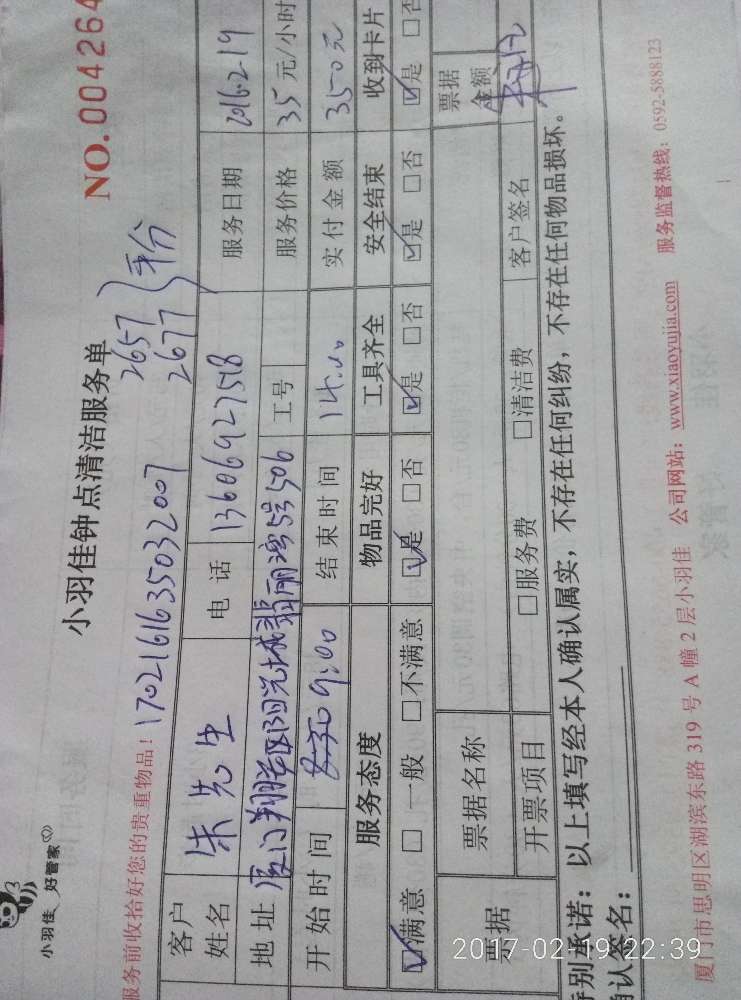 小羽佳 好管家
小羽佳钟点清洁服务单
NO.004264
服务前收拾好您的贵重物品! 1702161635032007
2657
2677
客户姓名 朱先生 电话 13606927518 服务日期 2016.2.19
地址 厦门翔 阳光城翡丽湾5号506 工号 服务价格 35元/小时
开始时间 9:00 结束时间 14:00 实付金额 350元
服务态度 物品完好 工具齐全 安全结束 收到卡片
☑满意 □一般 □不满意 ☑是 □否 ☑是 □否 ☑是 □否 ☑是 □否
票据 票据名称 票据金额
开票项目 □服务费 □清洁费 客户签名
特别承诺:以上填写经本人确认属实,不存在任何纠纷,不存在任何物品损坏。
确认签名:
厦门市思明区湖滨东路319号A幢2层小羽佳 公司网站:www.xiaoyujia.com 服务监督热线:0592-5888123
2017-02-19 22:39